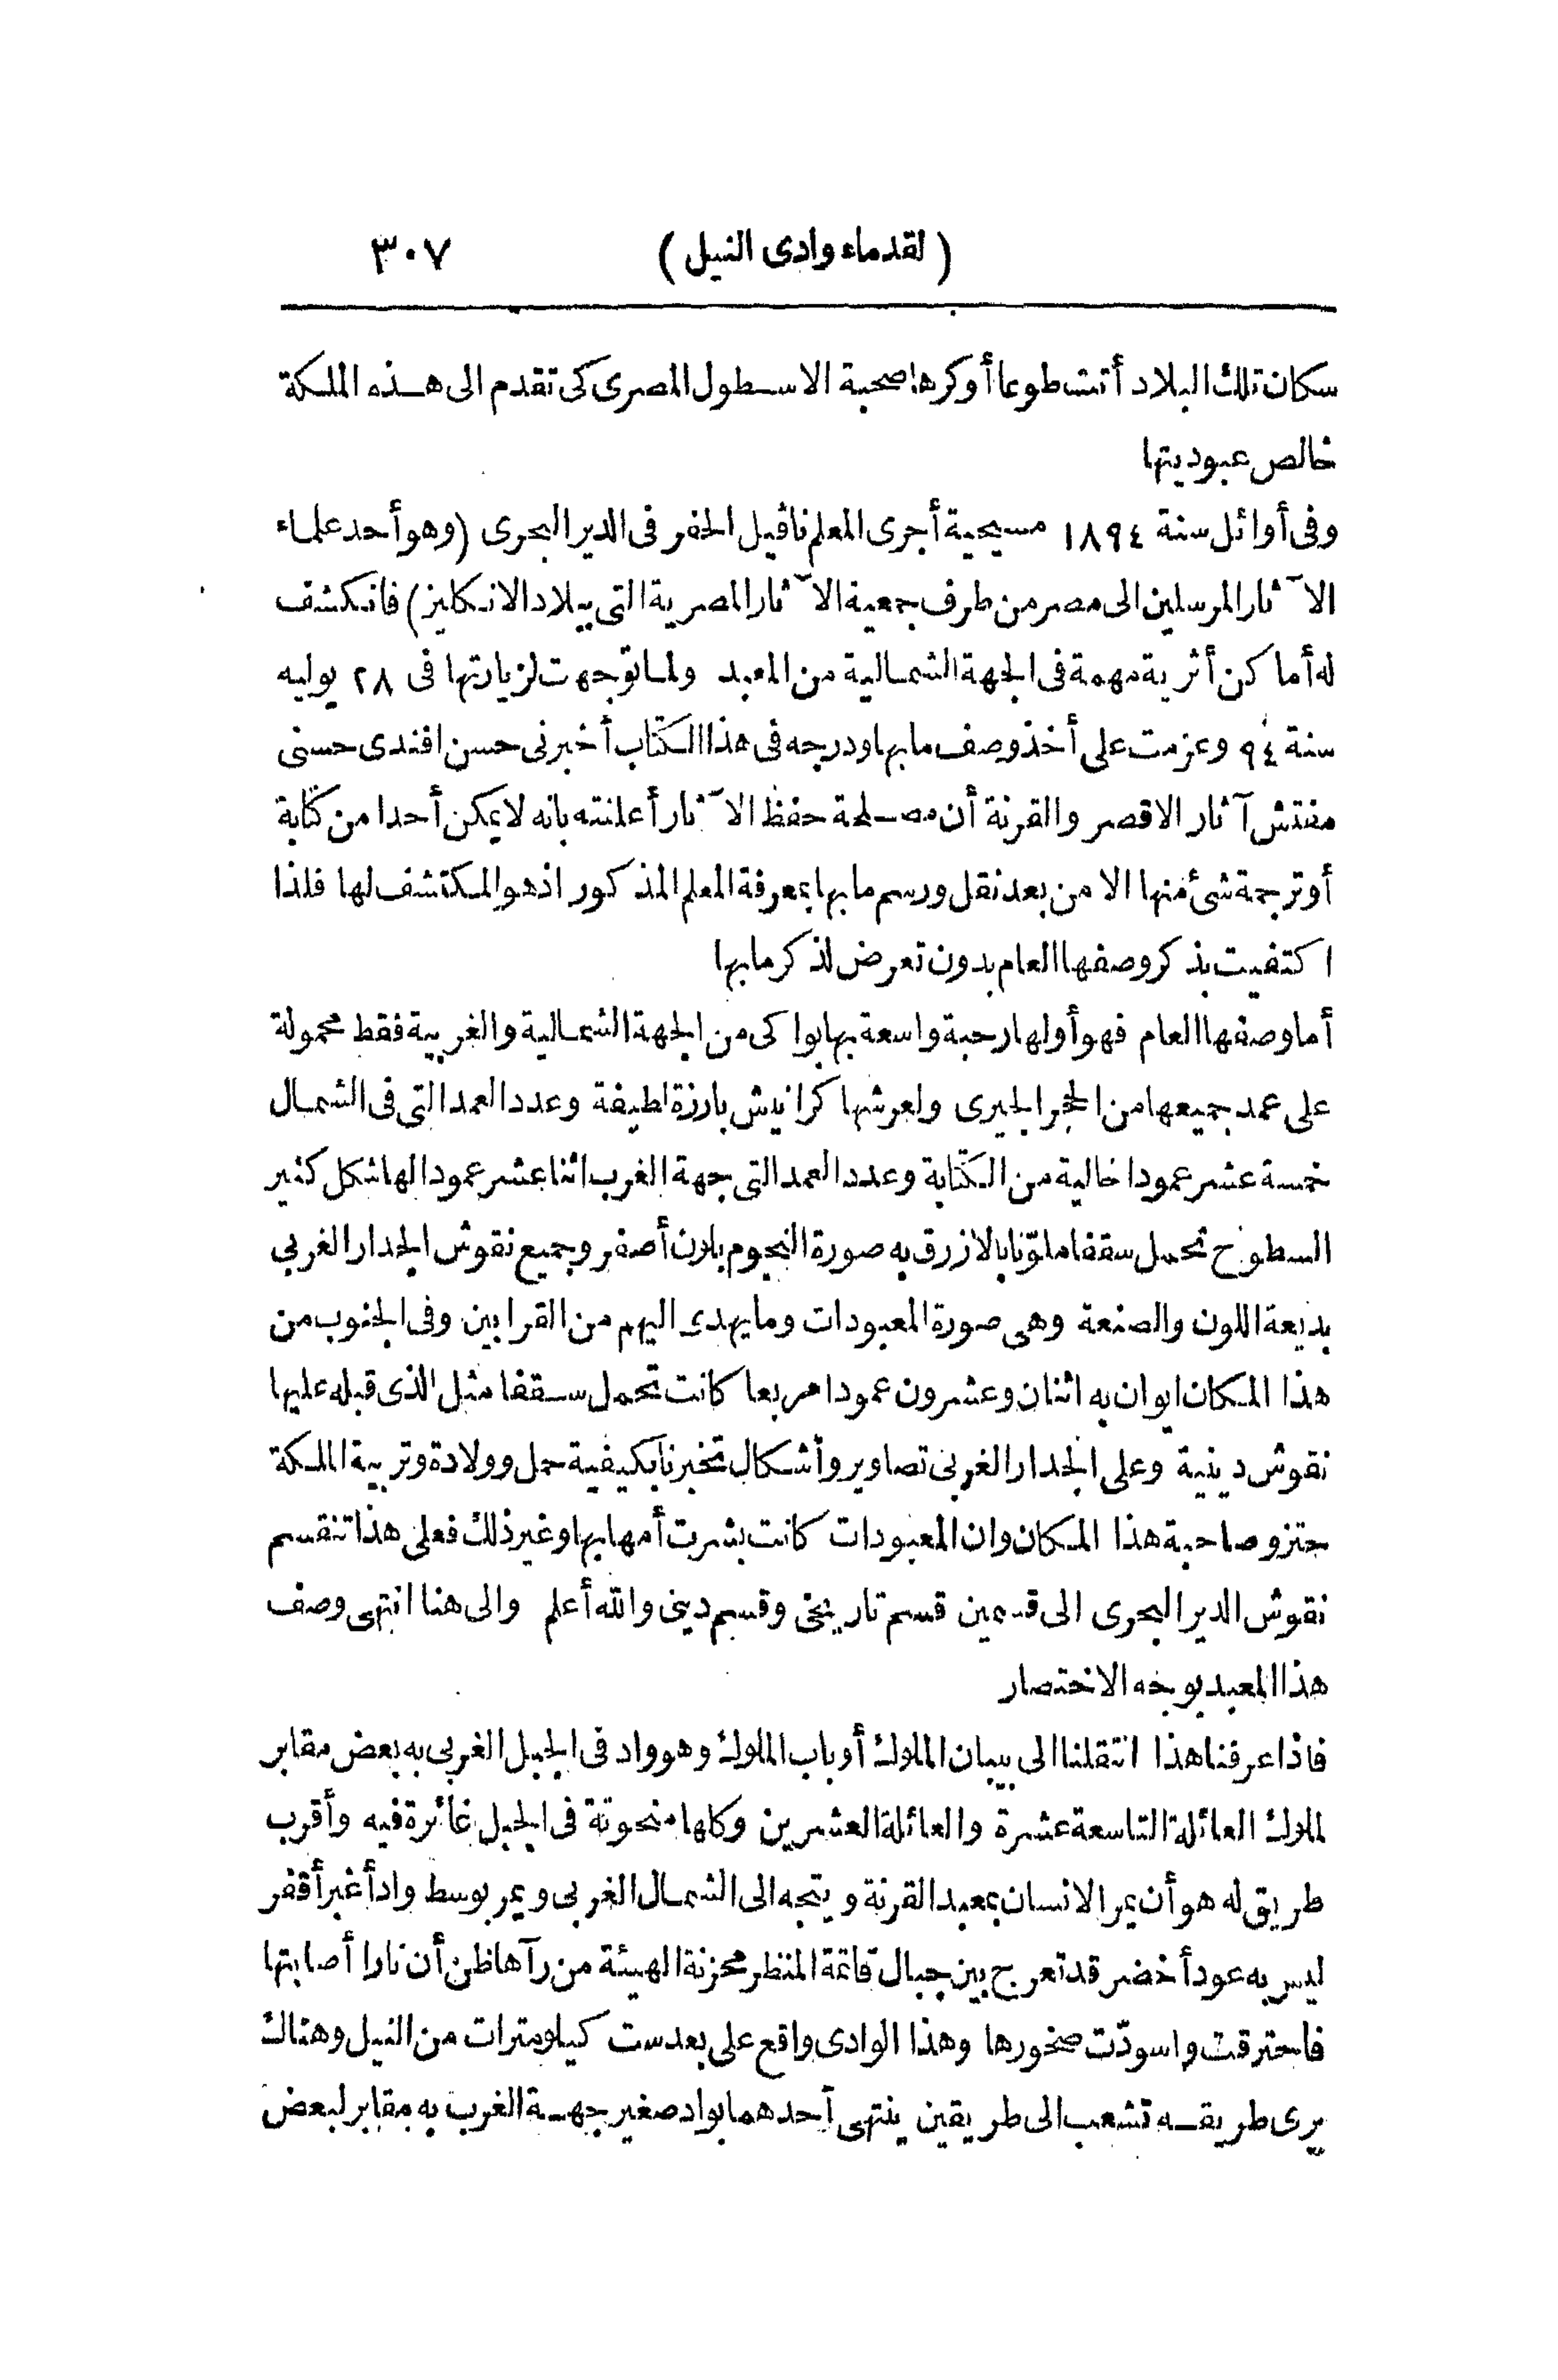 (لقدماء وادى النيل) ٣٠٧
سكان تلك البلاد أتت طوعا أو كرها صحبة الاسطول المصرى كى تقدم الى هذه الملكة
خالص عبوديتها
وفى أوائل سنة ١٨٩٤ مسيحية أجرى المعلم نافيل الحفر فى الدير البحرى (وهو أحد علماء
الآثار المرسلين الى مصر من طرف جمعية الآثار المصرية التى ببلاد الانكليز) فانكشف
له أماكن أثرية مهمة فى الجهة الشمالية من المعبد ولما توجهت لزيارتها فى ٢٨ يوليه
سنة ٩٤ وعزمت على أخذ وصف ما بها ودرجه فى هذا الكتاب أخبرنى حسن افندى حسنى
مفتش آثار الاقصر والقرنة أن مصلحة حفظ الآثار أعلنته بانه لا يمكن أحدا من كتابة
أو ترجمة شئ منها الا من بعد نقل ورسم ما بها بمعرفة المعلم المذكور اذ هو المكتشف لها فلذا
اكتفيت بذكر وصفها العام بدون تعرض لذكر ما بها
أما وصفها العام فهو أولها رحبة واسعة بها بواكى من الجهة الشمالية والغربية فقط محمولة
على عمد جميعها من الحجر الجيرى ولعرشها كرانيش بارزة لطيفة وعدد العمد التى فى الشمال
خمسة عشر عمودا خالية من الكتابة وعدد العمد التى جهة الغرب اثنا عشر عمودا لها شكل كثير
السطوح تحمل سقفا ملوّنا بالازرق به صورة النجوم بلون أصفر وجميع نقوش الجدار الغربى
بديعة اللون والصنعة وهى صورة المعبودات وما يهدى اليهم من القرابين وفى الجنوب من
هذا المكان ايوان به اثنان وعشرون عمودا مربعا كانت تحمل سقفا مثل الذى قبله عليها
نقوش دينية وعلى الجدار الغربى تصاوير وأشكال تخبرنا بكيفية حمل وولادة وتربية الملكة
حتزو صاحبة هذا المكان وان المعبودات كانت بشرت أمها بها وغير ذلك فعلى هذا تنقسم
نقوش الدير البحرى الى قسمين قسم تاريخى وقسم دينى والله أعلم والى هنا انتهى وصف
هذا المعبد بوجه الاختصار
فاذا عرفنا هذا انتقلنا الى بيبان الملوك أو باب الملوك وهو واد فى الجبل الغربى به بعض مقابر
لملوك العائلة التاسعة عشرة والعائلة العشرين وكلها منحوتة فى الجبل غائرة فيه وأقرب
طريق له هو أن يمر الانسان بمعبد القرنة ويتجه الى الشمال الغربى ويمر بوسط واد أغبر أقفر
ليس به عود أخضر قد تعرج بين جبال قاتمة المنظر محزنة الهيئة من رآها ظن أن نارا أصابتها
فاحترقت واسودّت صخورها وهذا الوادى واقع على بعد ست كيلومترات من النيل وهناك
يرى طريقه تشعب الى طريقين ينتهى أحدهما بواد صغير جهة الغرب به مقابر لبعض